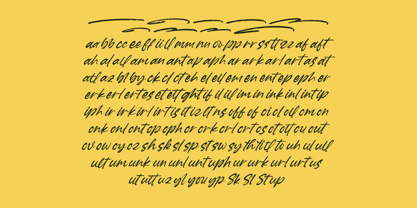 aa bb cc ee ff ii il mm nn oo pp rr ss tt zz af aft
ah al all am an ant ap aph ar ark arl art as at
atl az bl by ck cl ct eh el ell em en ent ep eph er
erk erl ert es et ett ght if il ill im in ink inl int ip
iph ir irk irl irt is it iz lt ns off of ol om on
onk onl ont op oph or ork orl ort os ot ott ou out
ov ow oy oz sh sk sl sp st sw sy th tt tl to uh ul ull
ult um unk un unl unt uph ur urk url urt us
ut utt uz yl you yp Sk Sl St up